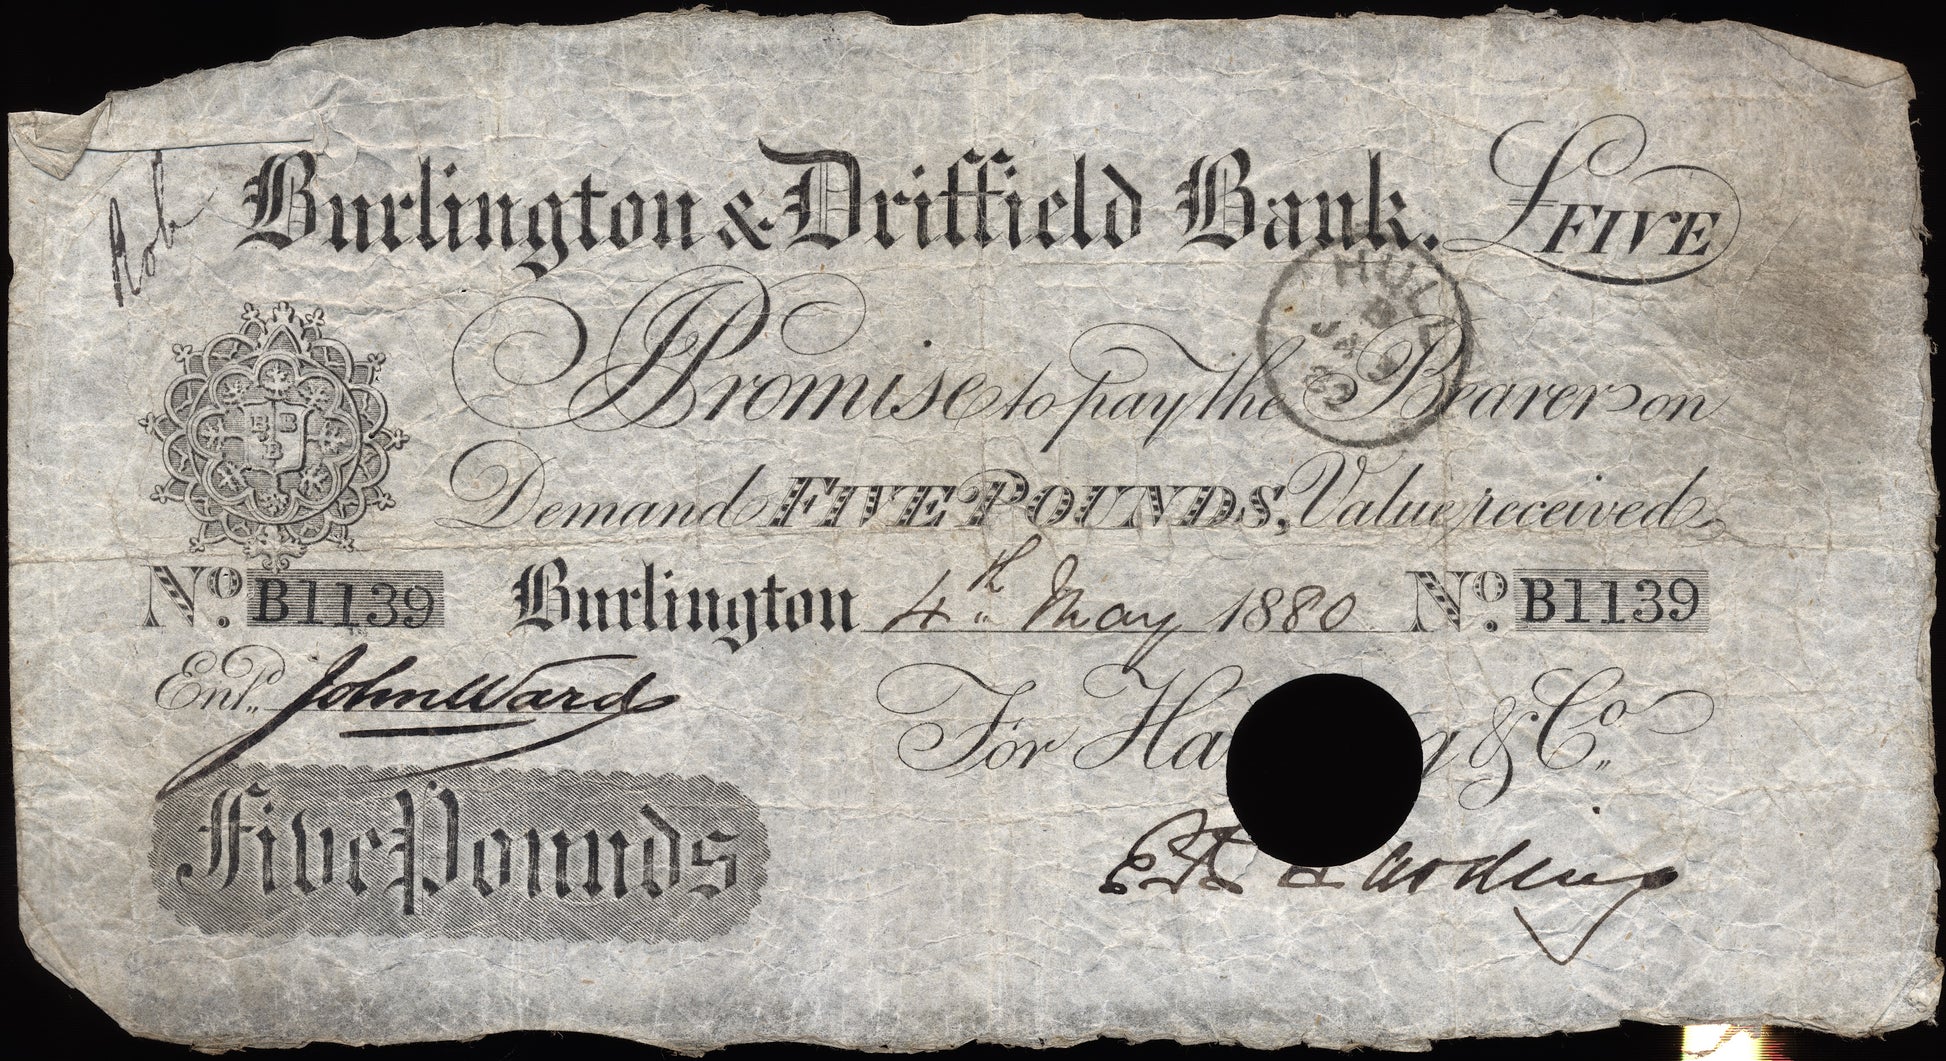 Rob
Burlington & Driffield Bank. £FIVE
HULL
D
JA
82
I Promise to pay the Bearer on
Demand FIVE POUNDS, Value received
BBBB
No. B1139 Burlington 4th May 1880 No. B1139
Entd. John Ward For Ha g & Co.
Five Pounds Harding